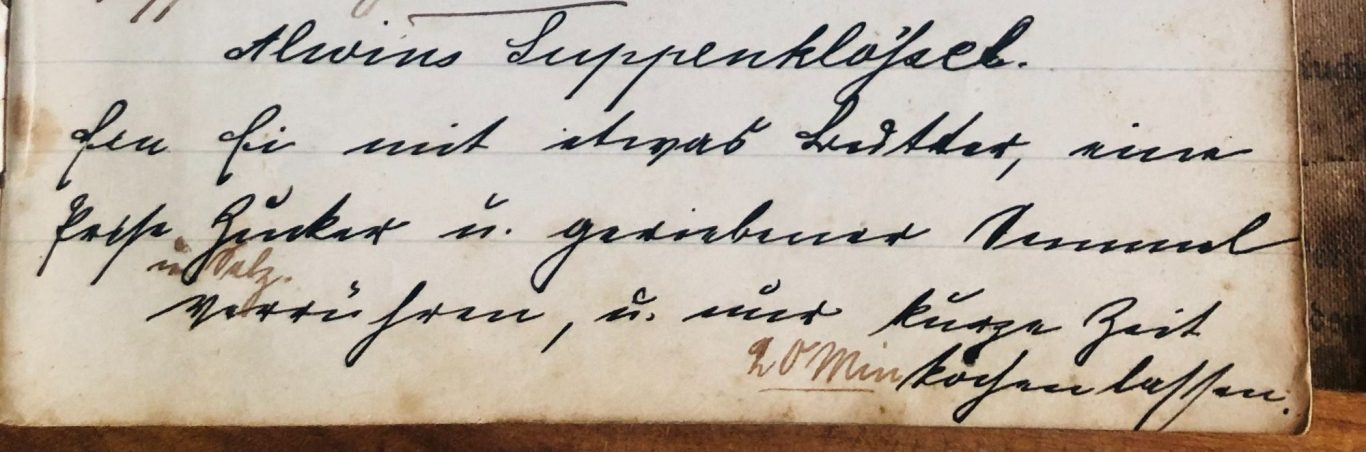 Alwins Suppenklößel.
Ein Ei mit etwas Butter, eine
Prise Zucker u. geriebener Semmel
u. Salz.
verrühren, u. nur kurze Zeit
20 Min kochen lassen.